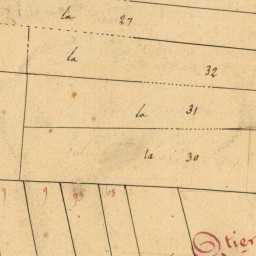 la 27
la
32
la 31
la 30
9 9
tier